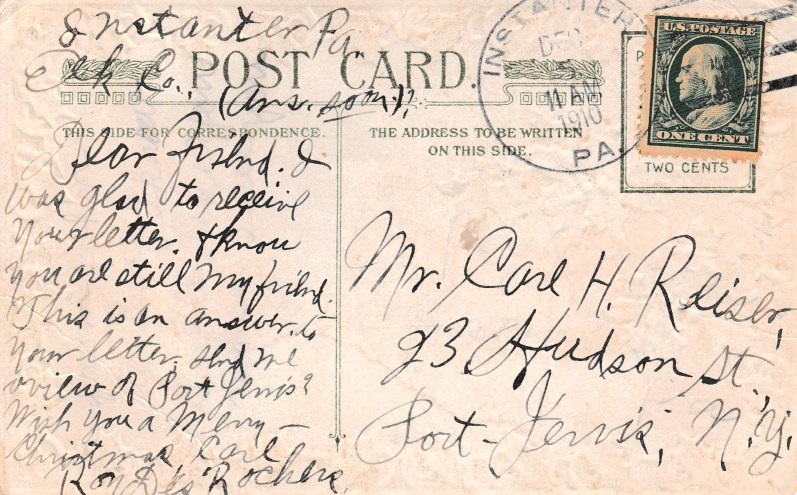 Instanter Pa.
Elk Co., (Ans. soon)?
POST CARD.
THIS SIDE FOR CORRESPONDENCE.
Dear friend. I
was glad to receive
your letter. & know
you are still my friend.
This is an answer to
your letter. send me
a view of Port Jervis?
Wish you a Merry —
Christmas, Carl
Roy Des Rochers.
THE ADDRESS TO BE WRITTEN
ON THIS SIDE.
INSTANTER
DEC
5
11 AM
1910
PA.
U.S. POSTAGE
ONE CENT
TWO CENTS
Mr. Carl H. Reiser,
23 Hudson St,
Port-Jervis, N.Y.